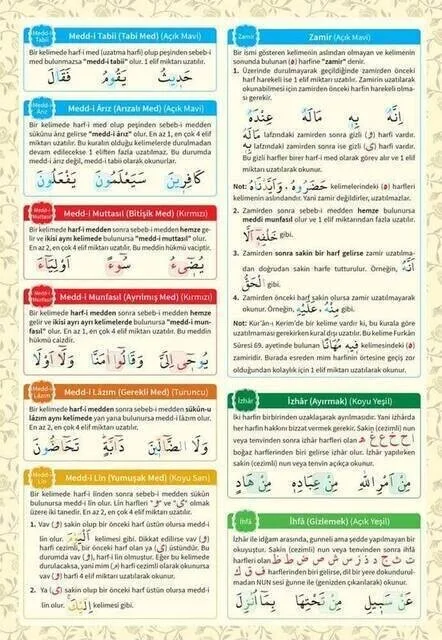 Medd-i Tabii
Medd-i Tabii (Tabi Med) (Açık Mavi)
Bir kelimede harf-i med (uzatma harfi) olup peşinden sebeb-i
med bulunmazsa "medd-i tabii" olur. 1 elif miktarı uzatılır.
حَدِيثُ يَقُومُ فَقَالَ
Medd-i Ârız
Medd-i Ârız (Arızalı Med) (Açık Mavi)
Bir kelimede harf-i med olup peşinden sebeb-i medden
sükûnu ârız gelirse "medd-i ârız" olur. En az 1, en çok 4 elif
miktarı uzatılır. Bu kuralın olduğu kelimelerde durulmadan
devam edilecekse 1 eliften fazla uzatılmaz. Bu durumda
medd-i ârız değil, medd-i tabii olarak okunurlar.
كَافِرِينَ سَيَعْلَمُونَ يَفْعَلُونَ
Medd-i Muttasıl
Medd-i Muttasıl (Bitişik Med) (Kırmızı)
Bir kelimede harf-i medden sonra sebeb-i medden hemze
gelir ve ikisi aynı kelimede bulunursa "medd-i muttasıl" olur.
En az 2, en çok 4 elif miktarı uzatılır. Bu meddin hükmü vaciptir.
يُضِٓيءُ سُٓوءٌ اَوْلِيَٓاءَ
Medd-i Munfasıl
Medd-i Munfasıl (Ayrılmış Med) (Kırmızı)
Bir kelimede harf-i medden sonra sebeb-i medden hemze
gelir ve ikisi ayrı ayrı kelimelerde bulunursa "medd-i mun-
fasıl" olur. En az 2, en çok 4 elif miktarı uzatılır. Bu meddin
hükmü caizdir.
يُوحٰٓى اِلَيَّ وَقَالُٓوا اٰمَنَّا وَلَٓا اَوْلَا
Medd-i Lâzım
Medd-i Lâzım (Gerekli Med) (Turuncu)
Bir kelimede harf-i medden sonra sebeb-i medden sükûn-u
lâzım aynı kelimede yan yana bulunursa medd-i lâzım olur.
En az 2, en çok 4 elif miktarı uzatılır.
وَلَا الضَّٓالّ۪ينَ دَٓابَّةٍ تَحَٓاضُّونَ
Medd-i Lin
Medd-i Lin (Yumuşak Med) (Koyu Sarı)
Bir kelimede harf-i linden sonra sebeb-i medden sükûn
bulunursa medd-i lin olur. Lin harfleri "و" ve "ي" olmak
üzere iki tanedir. En az 2, en çok 4 elif miktarı uzatılır.
1. Vav (و) sakin olup bir önceki harf üstün olursa medd-i
lin olur. kelimesi gibi. Dikkat edilirse vav (و)
harfi cezimli, bir önceki harf olan ya (ي) üstündür. Bu
durumda vav (و), harf-i lin olmuştur. Eğer bu kelimede
durulacaksa, yani mim (م) harfi cezimli olarak okunursa
vav (و) harfi 4 elif miktarı uzatılarak okunur.
2. Ya (ي) sakin olup bir önceki harf üstün olursa medd-i
lin olur. اِلَيْكَ kelimesi gibi.
Zamir
Zamir (Açık Mavi)
Bir ismi gösteren kelimenin aslından olmayan ve kelimenin
sonunda bulunan (ه) harfine "zamir" denir.
1. Üzerinde durulmayarak geçildiğinde zamirden önceki
harf harekeli ise zamir uzatılarak okunur. Zamirin uzatılarak
okunabilmesi için zamirden önceki harfin harekeli olma-
sı gerekir.
اِنَّهُ بِهِ مَالَهُ عِنْدَهُ
مَالَهُ lafzındaki zamirden sonra gizli (و) harfi vardır.
بِهِ lafzındaki zamirden sonra ise gizli (ي) harfi vardır.
Bu gizli harfler birer harf-i med olarak görev alır ve 1 elif
miktarı uzatılarak okunur.
Not: حَضَرُوهُ ، وَاَيَّدْنَاهُ kelimelerindeki (ه) harfleri
kelimenin aslındandır. Yani zamir değildirler, uzatılmazlar.
2. Zamirden sonra sebeb-i medden hemze bulunursa
meddi munfasıl olur ve 1 elif miktarından fazla uzatılır.
gibi.
3. Zamirden sonra sakin bir harf gelirse zamir uzatılma-
dan doğrudan sakin harfe tutturulur. Örneğin, اَنَّهُ
الْحَقُّ gibi.
4. Zamirden önceki harf sakin olursa zamir uzatılmayarak
okunur. Örneğin, مِنْهُ ، عَلَيْهِ gibi.
Not: Kur'ân-ı Kerim'de bir kelime vardır ki, bu kurala göre
uzatılmaması gerekirken kural dışı uzatılır. Bu kelime Furkân
Sûresi 69. ayetinde bulunan فِيهِ مُهَانًا kelimesindeki (ه)
zamiridir. Burada esreden mim harfinin ötresine geçiş zor
olduğundan kolaylık için 1 elif miktarı uzatılarak okunur.
İzhâr
İzhâr (Ayırmak) (Koyu Yeşil)
İki harfin birbirinden uzaklaşarak ayrılmasıdır. Yani izhârda
her harfin hakkını bizzat vermek gerekir. Sakin (cezimli) nun
veya tenvinden sonra izhâr harfleri olan ا ح خ ع غ ه
boğaz harflerinden biri gelirse izhâr olur. İzhâr yapılırken
sakin (cezimli) nun veya tenvin açıkça okunur.
مِنْ اَمْرِ اللّٰهِ مِنْ عِبَادِهِ مِنْ هَادٍ
İhfâ
İhfâ (Gizlemek) (Açık Yeşil)
İzhâr ile idğam arasında, gunneli ama şedde yapılmayan bir
okuyuştur. Sakin (cezimli) nun veya tenvinden sonra ihfâ
harfleri olan ت ث ج د ذ ز س ش ص ض ط ظ
ف ق ك harflerinden biri gelirse, dil bir yere dokundurul-
madan NUN sesi ğunne ile (genizden çıkarılarak) okunur.
عَنْ سَبِيلِ مِنْ تَحْتِهَا بِمَا اُنْزِلَ